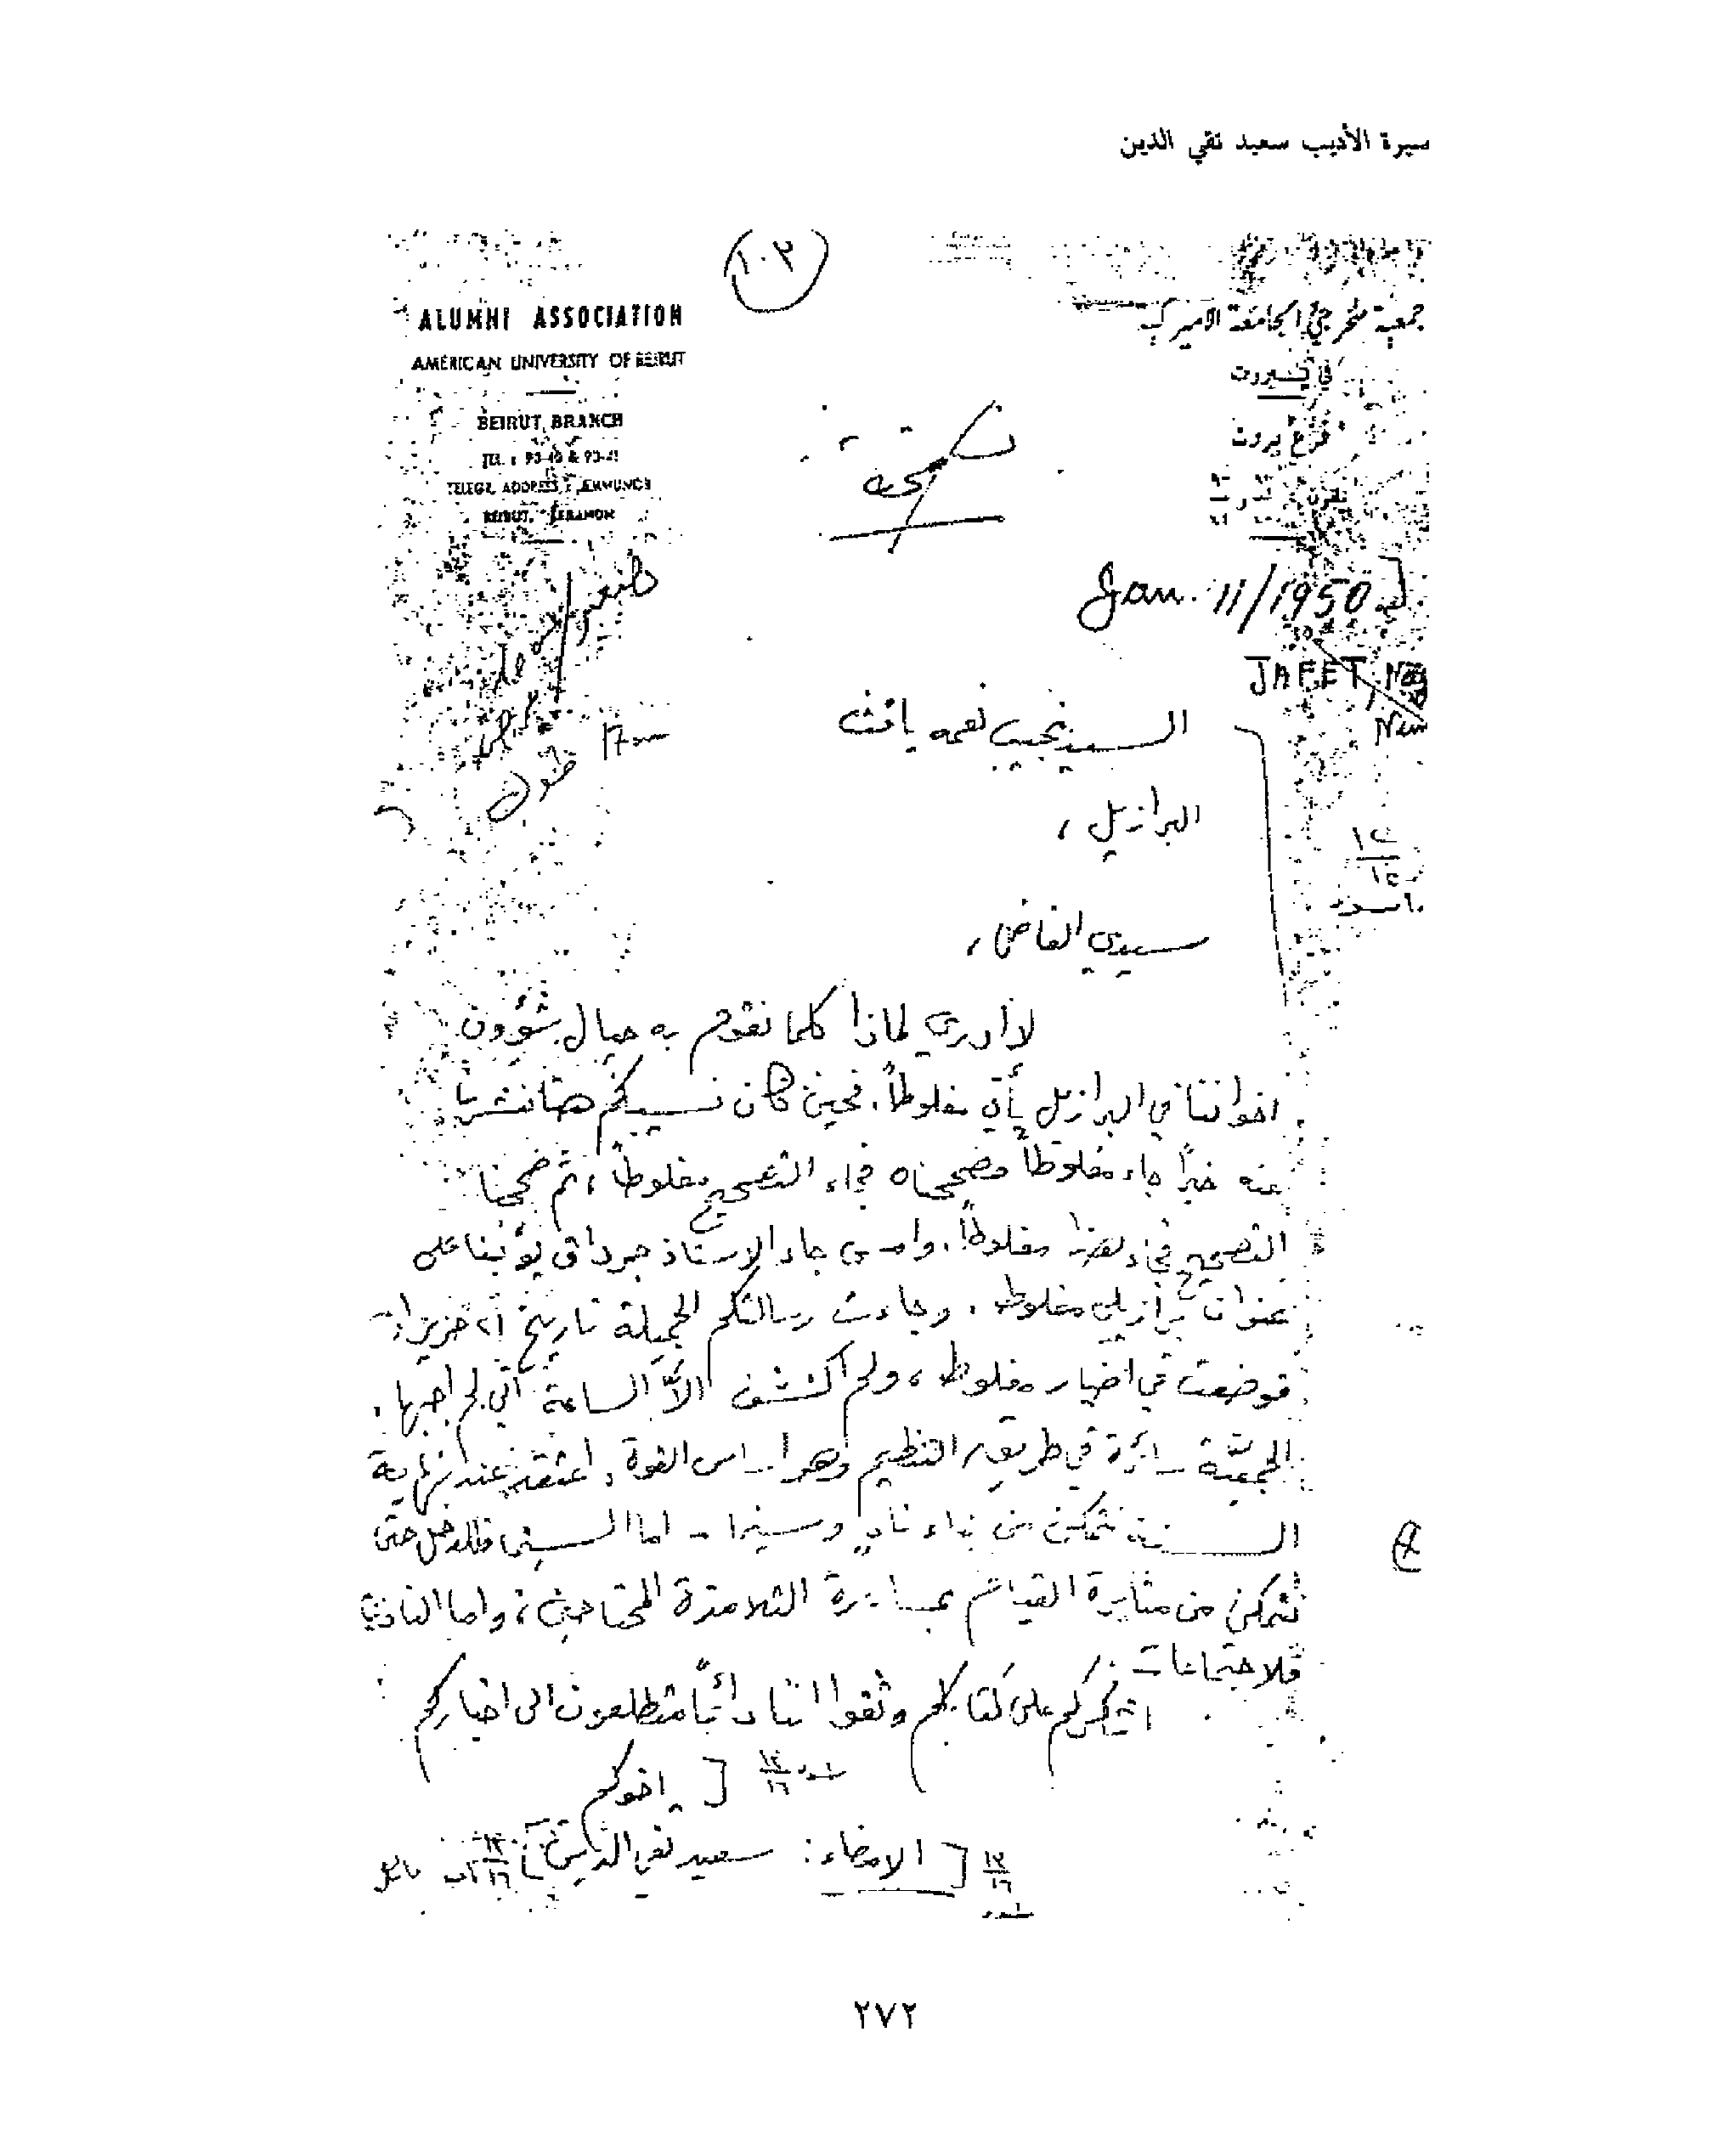 سيرة الأديب سعيد تقي الدين
١٠٣
ALUMNI ASSOCIATION
AMERICAN UNIVERSITY OF BEIRUT
BEIRUT BRANCH
TELEGR. ADDRESS
BEIRUT, LEBANON
جمعية متخرجي الجامعة الاميركية
في بيروت
فرع بيروت
تلفون
نسخة
Jan. 11/1950
JAFET, Nag
السيد نجيب نعمه يافث
البرازيل ،
سيدي الفاضل ،
لا أدري لماذا كلما نقوم به حيال شؤون
اخواننا في البرازيل يأتي مغلوطاً. فحين كان نسيبكم هنا نشرنا
عنه خبراً جاء مغلوطاً فصححناه فجاء التصحيح مغلوطاً، ثم صححنا
التصحيح فجاء ايضا مغلوطاً. وامس جاء الاستاذ جرداق يؤنبنا على
عنوان برازيلي مغلوط. وجاءت رسالتكم الجميلة تاريخ حزيران
فوضعت في اضبار مغلوط، ولم اكتشف الاّ الساعة اني لم اجبها.
الجمعيّة سائرة في طريق التنظيم وهو اساس القوة. اعتقد عند نهاية
السنة نتمكن من بناء نادٍ وسينما - اما السينما فللدخل حتى
نتمكن من مثابرة القيام بمساعدة التلامذة المحتاجين، واما النادي
فلاجتماعات
اشكركم على كتابكم وثقوا اننا دائماً متطلعون الى اخباركم
اخوكم
الامضاء: سعيد تقي الدين
٢٧٢